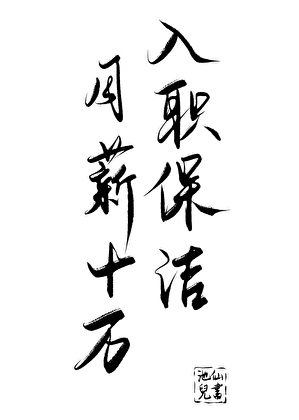 入职保洁
月薪十万
仙書
池兒